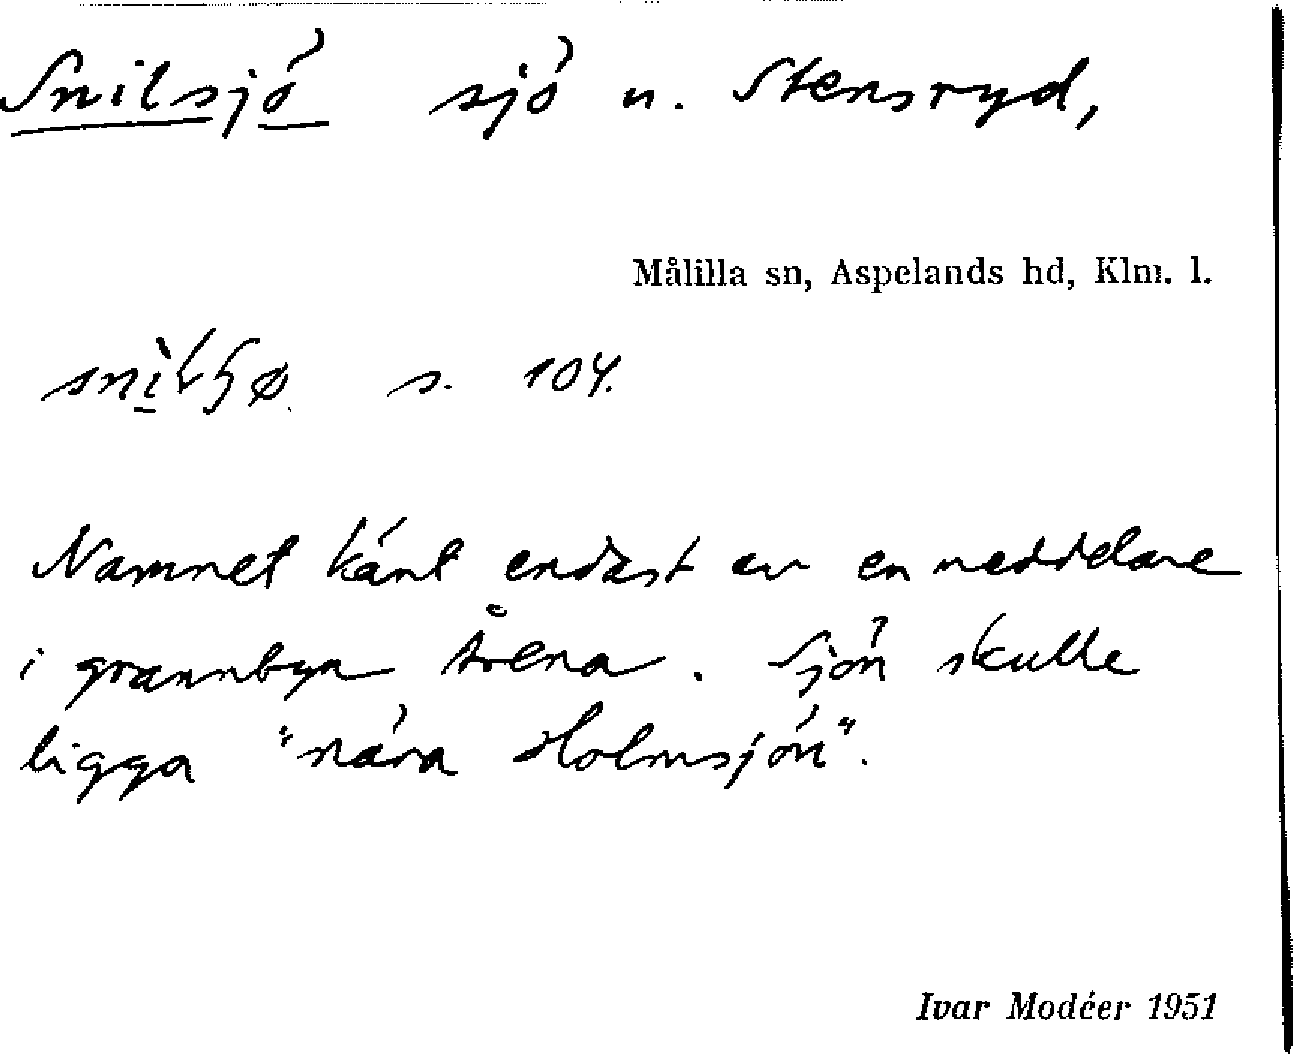 Snilsjö sjö u. Stensryd,
Målilla sn, Aspelands hd, Klm. l.
s. 104.
Namnet känt endast av en meddelare
i grannbyn Årena. Sjön skulle
ligga "nära Holmsjön".
Ivar Modéer 1951